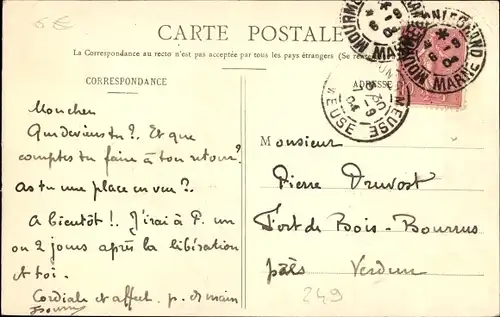 6€
CARTE POSTALE
La Correspondance au recto n'est pas acceptée par tous les pays étrangers (Se
CORRESPONDANCE
ADRESSE
MOURMELON-LE-GRAND
MARNE
MEUSE
MEUSE
Mon cher
Que deviens tu ?. Et que
comptes tu faire à ton retour ?
As tu une place en vue ?.
A bientôt !. J'irai à P. un
ou 2 jours après la libération
et toi.
Cordiale et affect. p. de main
Monsieur
Pierre Druvost
Fort de Bois-Bourrus
près Verdun
249